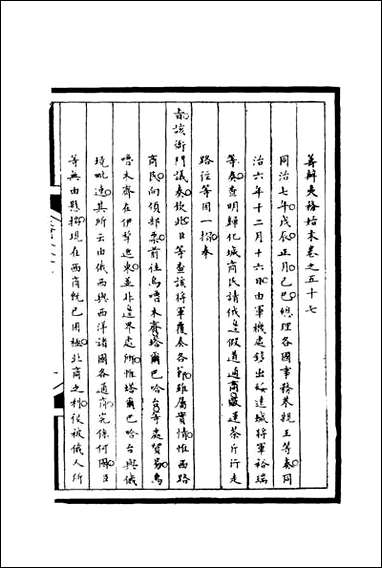 籌辦夷務始末卷之五十七
同治七年戊辰正月己巳總理各國事務恭親王等奏同
治六年十二月十六日由軍機處鈔出綏遠城將軍裕瑞
等奏查明歸化城商民請由恰假道通商販運茶斤行走
路徑等因一摺奉
旨該衙門議奏欽此臣等查該將軍覆奏各節雖屬實情惟西路
商民向係部票前往烏嚕木齊塔爾巴哈台等處貿易烏
嚕木齊在伊犂迤東並非邊界處所惟塔爾巴哈台與俄
境毗連其所云由俄西與西洋諸國各通商究係何國臣
等無由懸揣現在西商既已困極北商之利復被俄人所